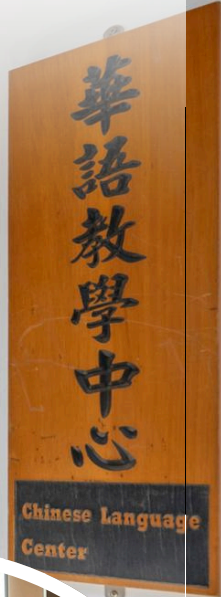 華語教學中心
Chinese Language
Center